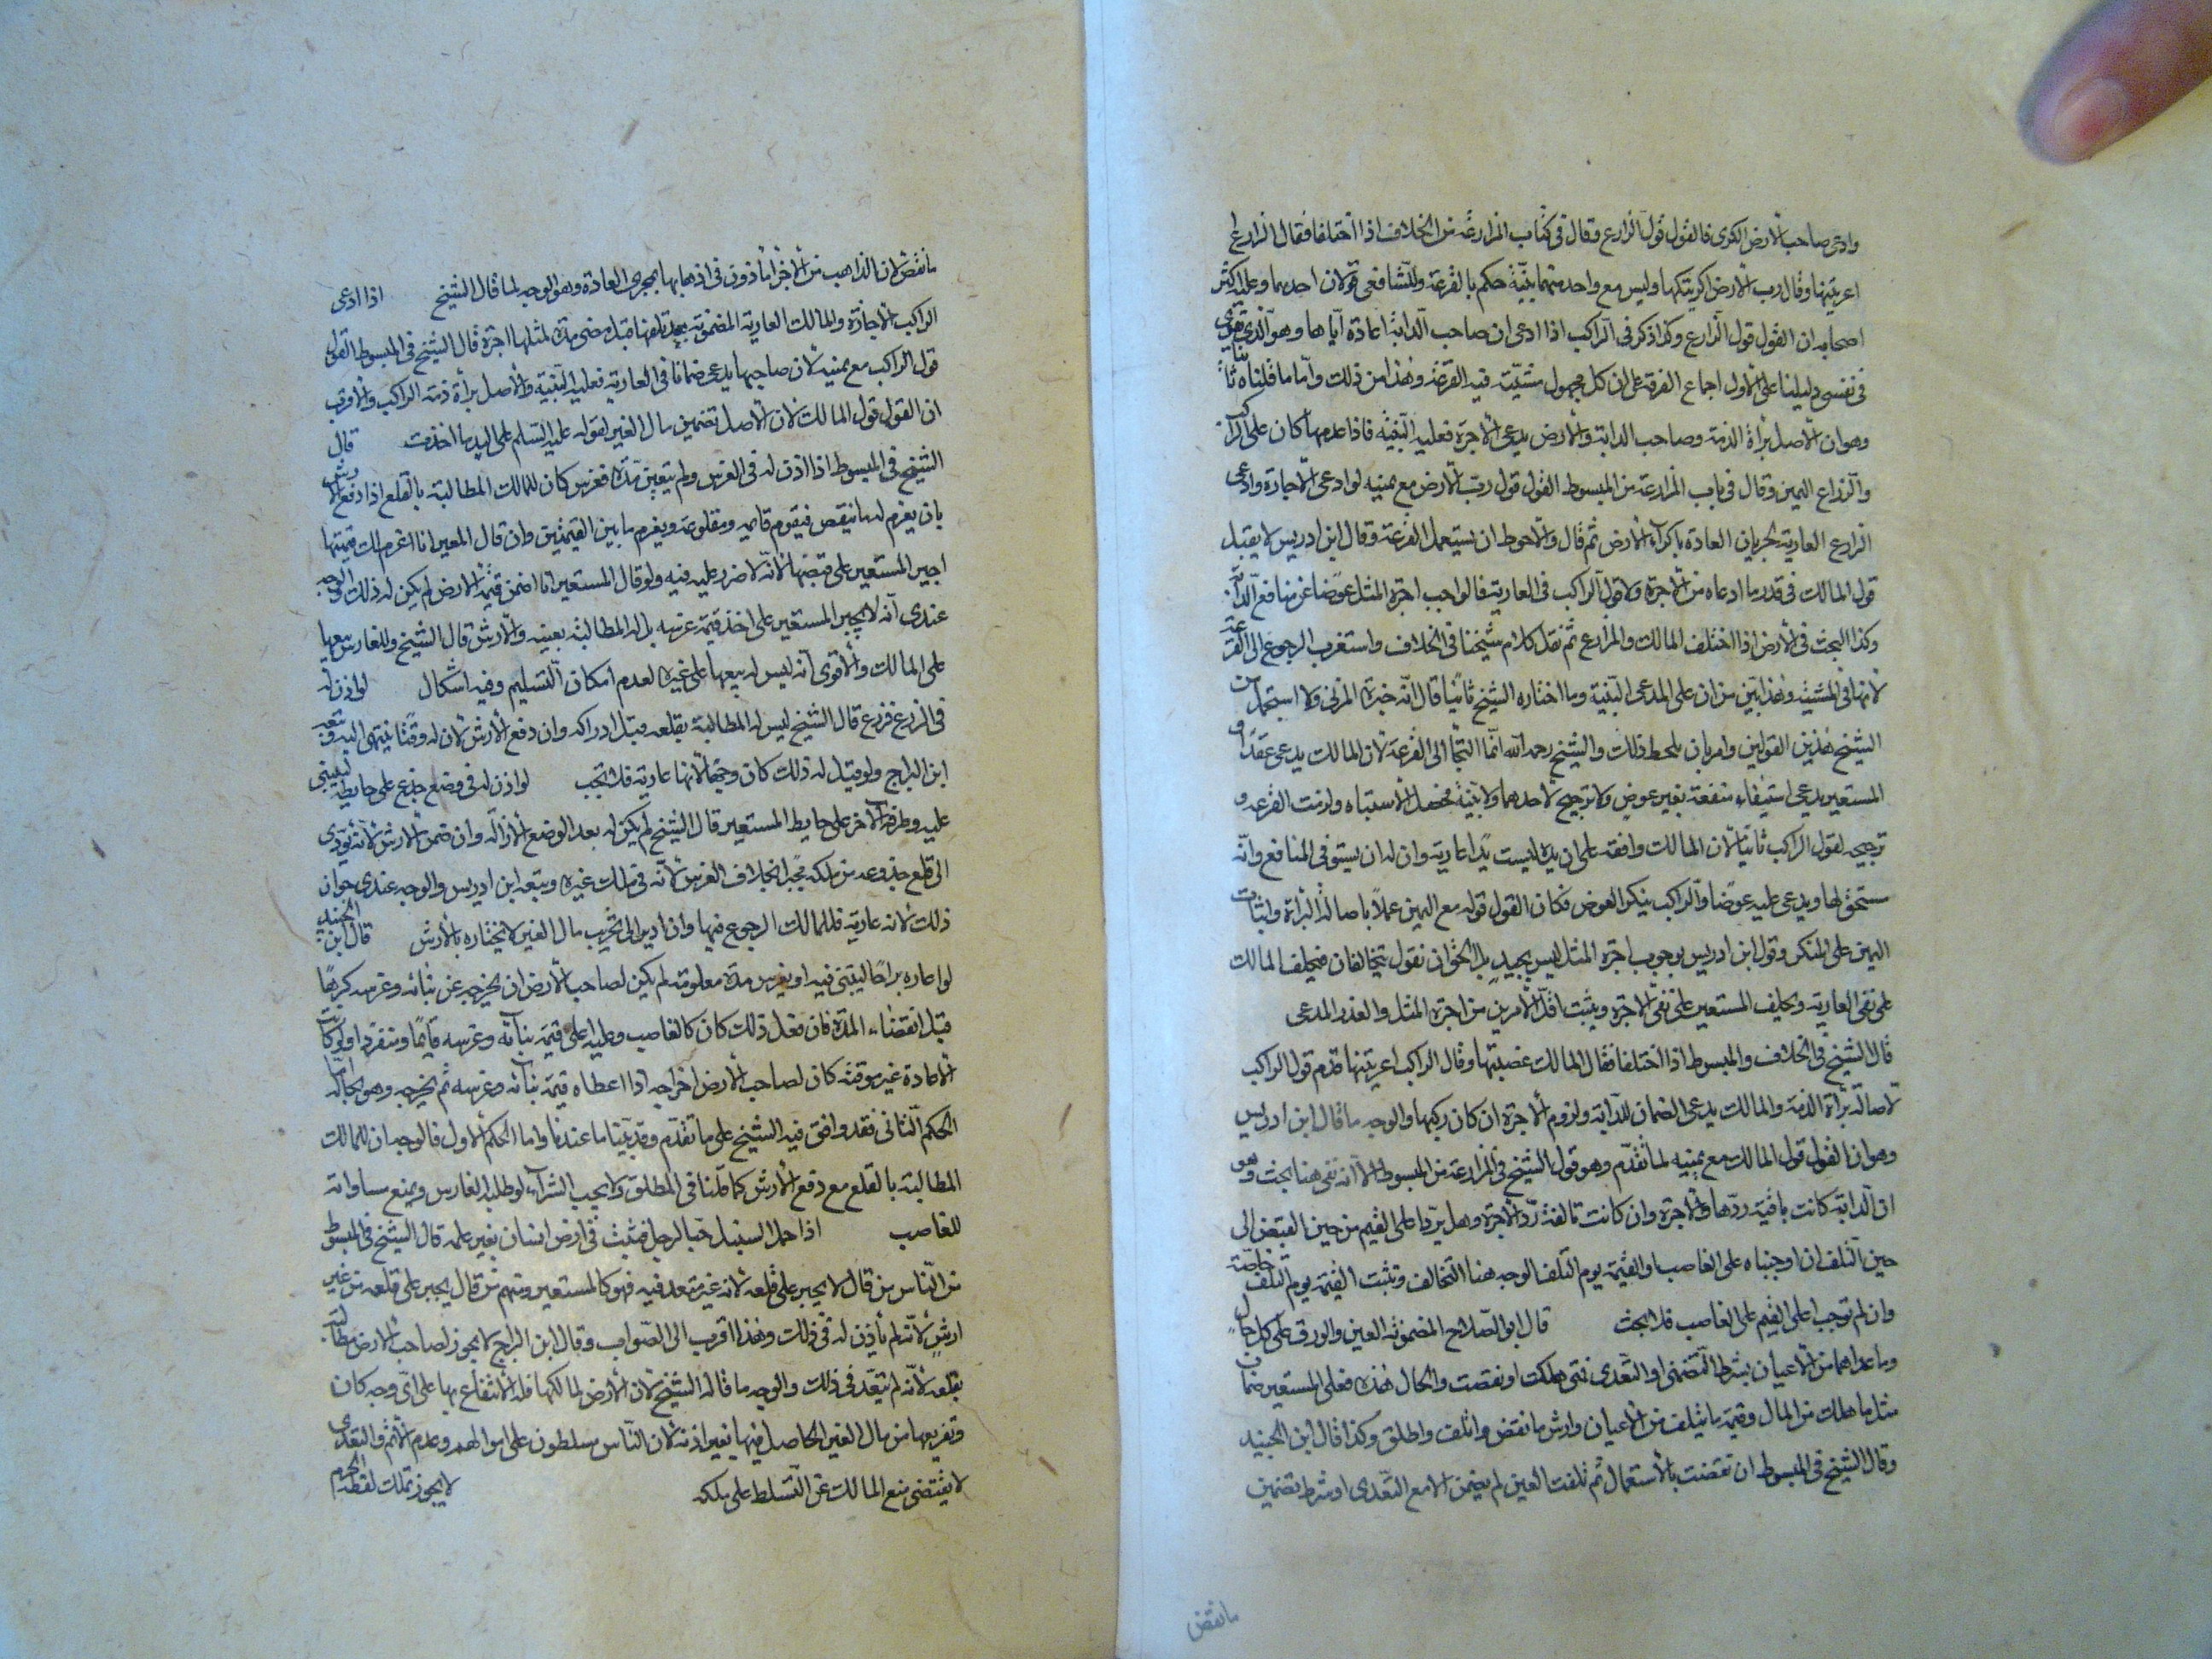 وادعى صاحب الارض الكرى فالقول قول الزارع وقال فى كتاب المزارعة من الخلاف اذا اختلفا فقال الزارع
اعرتنيها وقال رب الارض اكريتكها وليس مع واحد منهما بينة حكم بالقرعة وللشافعى قولان احدهما وعليه اكثر
اصحابه ان القول قول الزارع وكذا ذكر فى الراكب اذا ادعى ان صاحب الدابة اعاده اياها وهو الذى يقوى
فى نفسى دليلنا على الاول اجماع الفرقة على ان كل مجهول مشتبه فيه القرعة وهذا من ذلك واما ما قلناه ثانيا
وهو ان الاصل براة الذمة وصاحب الدابة والارض يدعى الاجرة فعليه البينة فاذا عدمها كان على الراكب
والزراع اليمين وقال فى باب المزارعة من المبسوط القول قول رب الارض مع يمينه لو ادعى الاجارة وادعى
الزارع العارية لجريان العادة باكراء الارض ثم قال والاحوط ان يستعمل القرعة وقال ابن ادريس لا يقبل
قول المالك فى قدر ما ادعاه من الاجرة ولا قول الراكب فى العارية فالواجب اجرة المثل عوضا عن منافع الدابة
وكذا البحث فى الارض اذا اختلف المالك والمزارع ثم نقل كلام شيخنا فى الخلاف واستغرب الرجوع الى القرعة
لانها فى المشتبه وهذا بين من ان على المدعى البينة وما اختاره الشيخ ثانيا قال انه خيرة المزنى ولا استجمل من
الشيخ هذين القولين وامر بان يلحظ ذلك والشيخ رحمه الله انما التجأ الى القرعة لان المالك يدعى عقدا و
المستعير يدعى استيفاء منفعة بغير عوض ولا ترجيح لاحدهما ولا بينة فحصل الاشتباه ولزمت القرعة و
ترجيحه لقول الراكب ثانيا لان المالك وافقه على ان يده ليست يدا عادية وان له ان يستوفى المنافع وانه
مستحق لها ويدعى عليه عوضا والراكب ينكر العوض فكان القول قوله مع اليمين عملا باصالة البراة واثبات
اليمين على المنكر وقول ابن ادريس بوجوب اجرة المثل ليس بجيد بل الحق ان نقول يتحالفان فيحلف المالك
على نفى العارية ويحلف المستعير على نفى الاجرة ويثبت اقل الامرين من اجرة المثل والقدر المدعى
قال الشيخ فى الخلاف والمبسوط اذا اختلفا فقال المالك غصبتنيها وقال الراكب اعرتنيها قدم قول الراكب
لاصالة براة الذمة والمالك يدعى الضمان للدابة ولزوم الاجرة ان كان ركبها والوجه ما قال ابن ادريس
وهو ان القول قول المالك مع يمينه لما تقدم وهو قول الشيخ فى المزارعة من المبسوط الا انه بقى هنا بحث وهو
ان الدابة كانت باقية ردها والاجرة وان كانت تالفة رد الاجرة وهل يرد اعلى القيم من حين القبض الى
حين التلف ان اوجبناه على الغاصب او القيمة يوم التلف الوجه هنا التحالف وتثبت القيمة يوم التلف خاصة
وان لم نوجب اعلى القيم على الغاصب فلا بحث قال ابو الصلاح المضمونة العين والورق على كل حال
وما عداهما من الاعيان بشرط التضمين او التعدى فمتى هلكت او نقصت والحال هذه فعلى المستعير ضمان
مثل ما هلك من المال وقيمة ما يتلف من الاعيان وارش ما نقص واتلف واطلق وكذا قال ابن الجنيد
وقال الشيخ فى المبسوط ان نقصت بالاستعمال ثم تلفت العين لم يضمن الا مع التعدى او شرط تضمين
مانقص
ما نقص لان الذاهب من الاجزاء ماذون فى اذهابها بمجرى العادة وهو الوجه لما قال الشيخ اذا ادعى
الراكب الاجارة والمالك العارية المضمونة بعد تلفها قبل مضى مدة لمثلها اجرة قال الشيخ فى المبسوط القول
قول الراكب مع يمينه لان صاحبها يدعى ضمانا فى العارية فعليه البينة والاصل براة ذمة الراكب والاقرب
ان القول قول المالك لان الاصل تضمين مال الغير لقوله عليه السلم على اليد ما اخذت قال
الشيخ فى المبسوط اذا اذن له فى الغرس ولم يتعين مدة فغرس كان للمالك المطالبة بالقلع اذا دفع الارش
بان يغرم له ما نيقص فيقوم قايمه ومقلوعه ويغرم ما بين القيمتين وان قال المعير انا اغرم لك قيمتها
اجبر المستعير على قبضها لانه لا ضرر عليه فيه ولو قال المستعير انا اضمن قيمة الارض لم يكن له ذلك والوجه
عندى انه لا يجبر المستعير على اخذ قيمة غرسه بل له المطالبة بعينه والارش قال الشيخ وللغارس بيعها
على المالك والاقوى انه ليس له بيعها على غيره لعدم امكان التسليم وفيه اشكال لو اذن له
فى الزرع فزرع قال الشيخ ليس له المطالبة بقلعه قبل ادراكه وان دفع الارش لان له وقتا ينتهى اليه وتبعه
ابن البراج ولو قيل له ذلك كان وجها لانها عارية فلا تجب لو اذن له فى وضع جذع على حايطه ليبنى
عليه وطرفه الاخر على حايط المستعير قال الشيخ لم يكن له بعد الوضع الازالة وان ضمن الارش لانه يؤدى
الى قلع جذوعه من ملكه مجبرا بخلاف الغرس لانه فى ملك غيره وتبعه ابن ادريس والوجه عندى جواز
ذلك لانه عارية فللمالك الرجوع فيها وان ادى الى تخريب مال الغير لانجباره بالارش قال ابن الجنيد
لو اعاره براحا ليبنى فيه او يغرس مدة معلومة لم يكن لصاحب الارض ان يخرجه عن بنائه وغرسه كرها
قبل انقضاء المدة فان فعل ذلك كان كالغاصب وعليه اعلى قيمة بنائه وغرسه قايما ومنفردا ولو كانت
الاعادة غير موقتة كان لصاحب الارض اخراجه اذا اعطاه قيمة بنائه وغرسه ثم يخرجه وهو بحاله اما
الحكم الثانى فقد وافق فيه الشيخ على ما تقدم وقد بينا ما عندنا واما الحكم الاول فالوجه ان للمالك
المطالبة بالقلع مع دفع الارش كما قلنا فى المطلق ولا يجب الشراء لو طلبه الغارس ويمنع مساواته
للغاصب اذا حمل السيل حبا لرجل فنبت فى ارض انسان بغير علمه قال الشيخ فى المبسوط
من الناس من قال لا يجبر على قلعه لانه غير متعد فيه فهو كالمستعير ومنهم من قال يجبر على قلعه من غير
ارش لانه لم ياذن له فى ذلك وهذا اقرب الى الصواب وقال ابن البراج لا يجوز لصاحب الارض مطالبته
بقلعه لانه لم يتعد فى ذلك والوجه ما قاله الشيخ لان الارض لمالكها فله الانتفاع بها على اى وجه كان
وتفريغها من مال الغير الحاصل فيها بغير اذنه لان الناس مسلطون على اموالهم وعدم الاثم والتعدى
لا يقتضى منع المالك عن التسلط على ملكه لا يجوز تملك لقطة الحرم